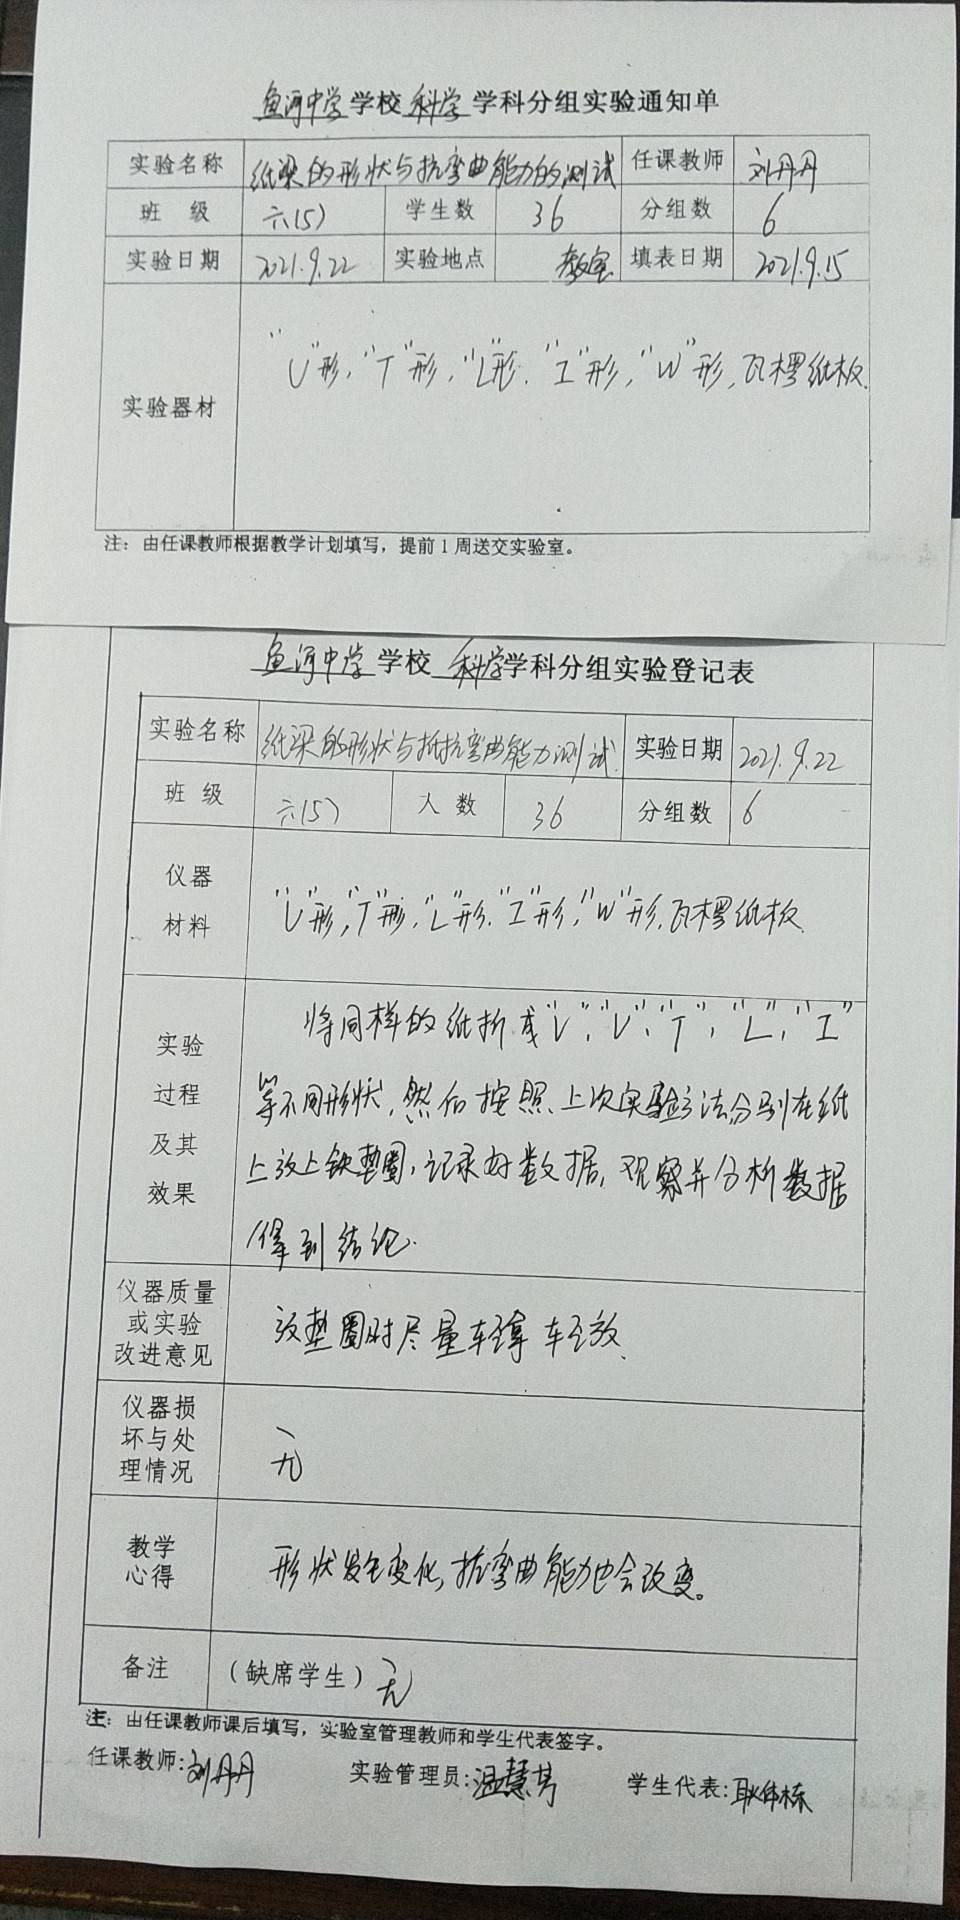 鱼河中学 学校 科学 学科分组实验通知单
实验名称 纸梁的形状与抗弯曲能力的测试 任课教师 刘丹丹
班 级 六(5) 学生数 36 分组数 6
实验日期 2021.9.22 实验地点 教室 填表日期 2021.9.15
实验器材 “U”形,“T”形,“L”形,“工”形,“W”形,瓦楞纸板.
注：由任课教师根据教学计划填写，提前1周送交实验室。
鱼河中学 学校 科学 学科分组实验登记表
实验名称 纸梁的形状与抵抗弯曲能力测试. 实验日期 2021.9.22
班 级 六(5) 人 数 36 分组数 6
仪器
材料
“U”形,“T”形,“L”形.“工”形,“W”形.瓦楞纸板.
实验
过程
及其
效果
将同样的纸折成“V”,“U”、“T”,“L”,“工”
等不同形状,然后按照上次实验方法分别在纸
上放上铁垫圈,记录好数据,观察并分析数据
得到结论.
仪器质量
或实验
改进意见
放垫圈时尽量轻拿轻放.
仪器损
坏与处
理情况
无
教学
心得
形状发生变化,抗弯曲能力也会改变。
备注 （缺席学生）无
注：由任课教师课后填写，实验室管理教师和学生代表签字。
任课教师:刘丹丹 实验管理员:温慧芳 学生代表:耿伟栋